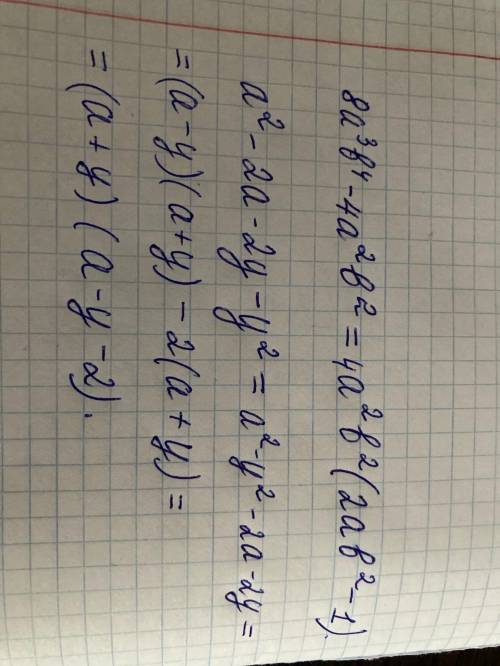 8a³b⁴ - 4a²b² = 4a²b²(2ab² - 1).
a² - 2a - 2y - y² = a² - y² - 2a - 2y =
= (a - y)(a + y) - 2(a + y) =
= (a + y)(a - y - 2).